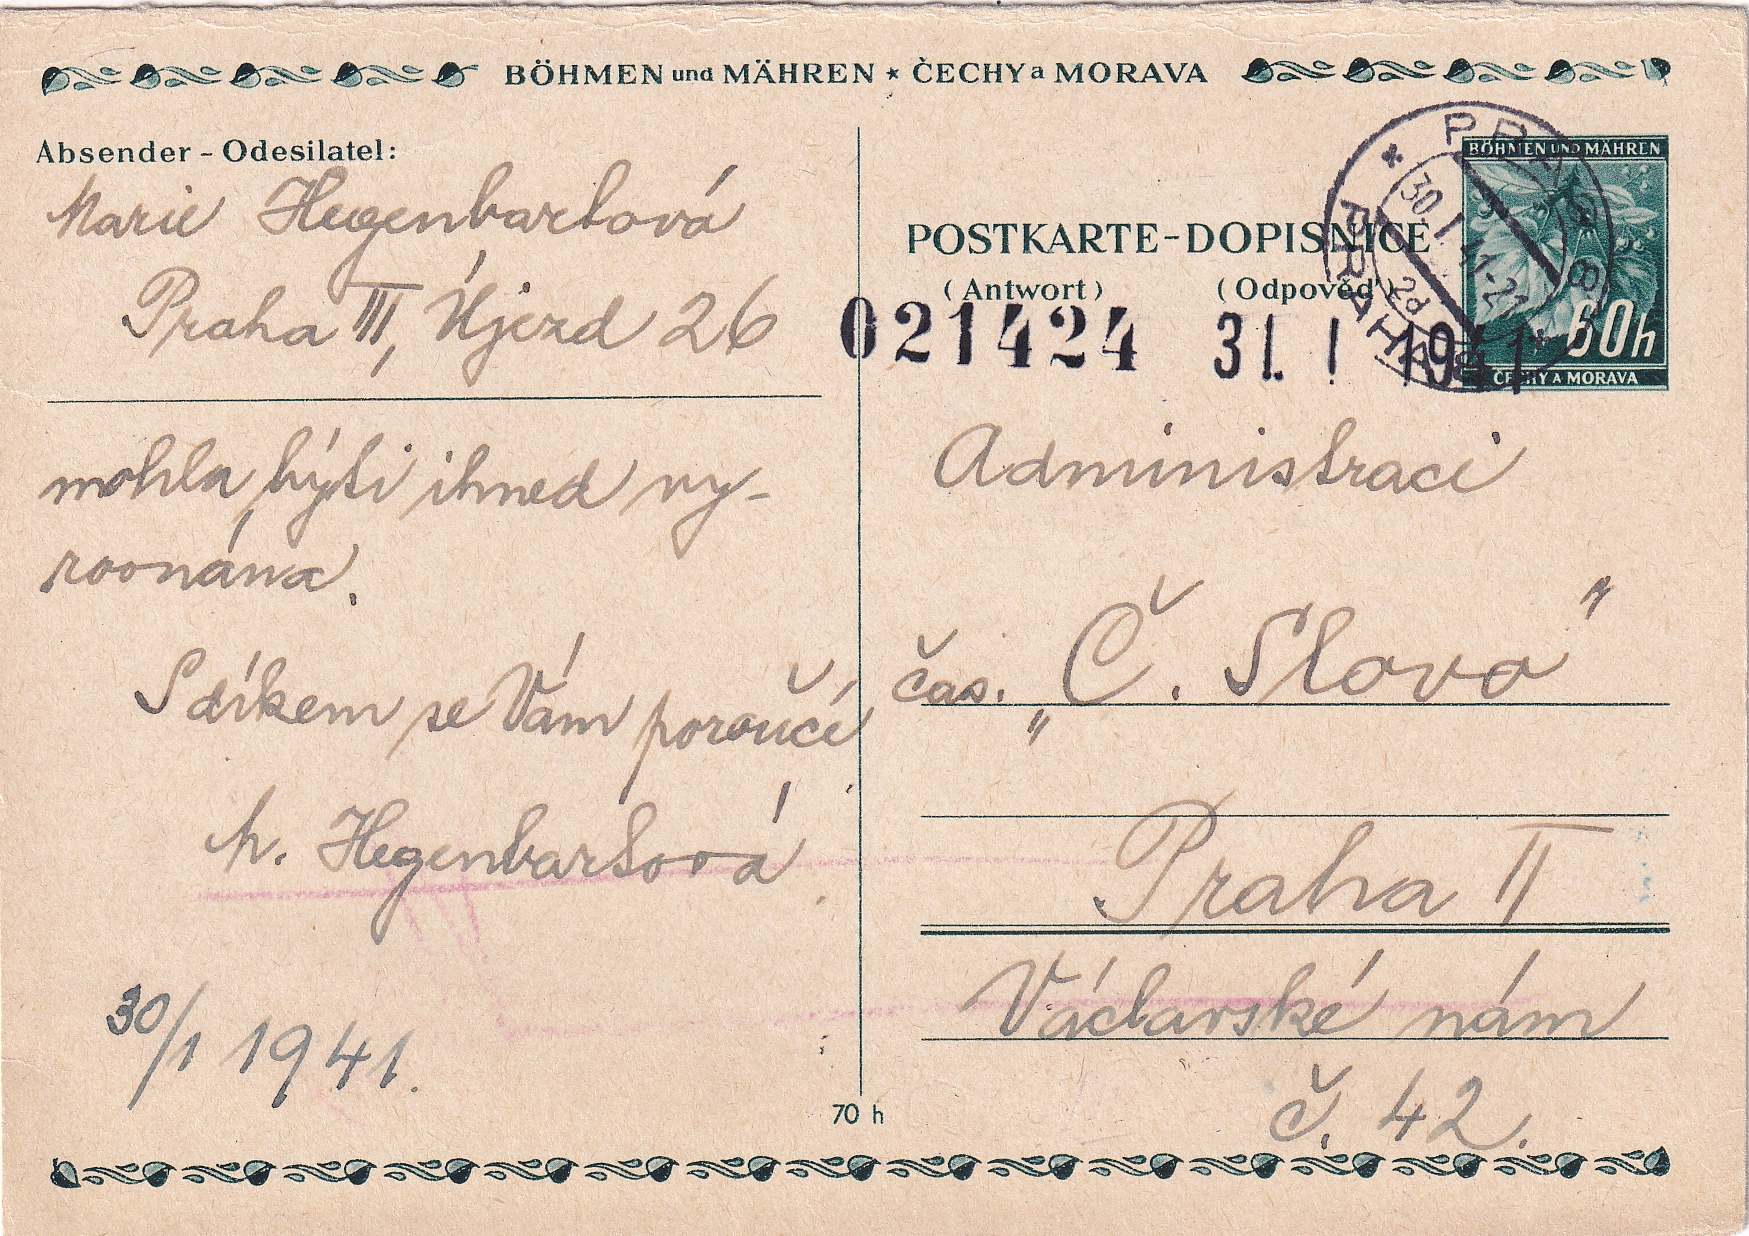 BÖHMEN und MÄHREN * ČECHY a MORAVA
Absender - Odesilatel:
Marie Hegenbartová
Praha III, Újezd 26
mohla býti ihned vy-
rovnána.
S díkem se Vám poroučí
M. Hegenbartová
30/1 1941.
70 h
POSTKARTE-DOPISNICE
(Antwort) (Odpověď)
021424 31. I 1941
PRAG 8
30. I 41-21
2d
PRAHA 8
BÖHMEN UND MÄHREN
60h
ČECHY A MORAVA
Administraci
čas. „Č. Slovo"
Praha II
Václavské nám
č. 42.